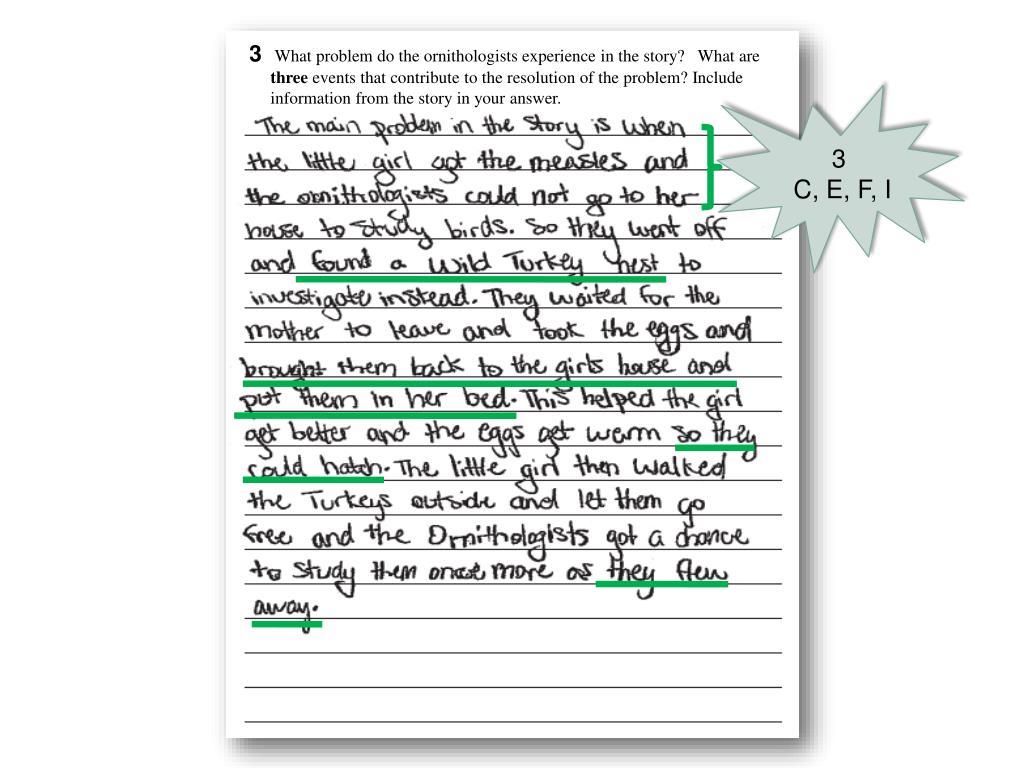 3 What problem do the ornithologists experience in the story? What are
three events that contribute to the resolution of the problem? Include
information from the story in your answer.
The main problem in the story is when
the little girl got the measles and
the ornithologists could not go to her
house to study birds. So they went off
and found a Wild Turkey nest to
investigate instead. They waited for the
mother to leave and took the eggs and
brought them back to the girls house and
put them in her bed. This helped the girl
get better and the eggs get warm so they
could hatch. The little girl then walked
the Turkeys outside and let them go
free and the Ornithologists got a chance
to study them once more as they flew
away.
3
C, E, F, I